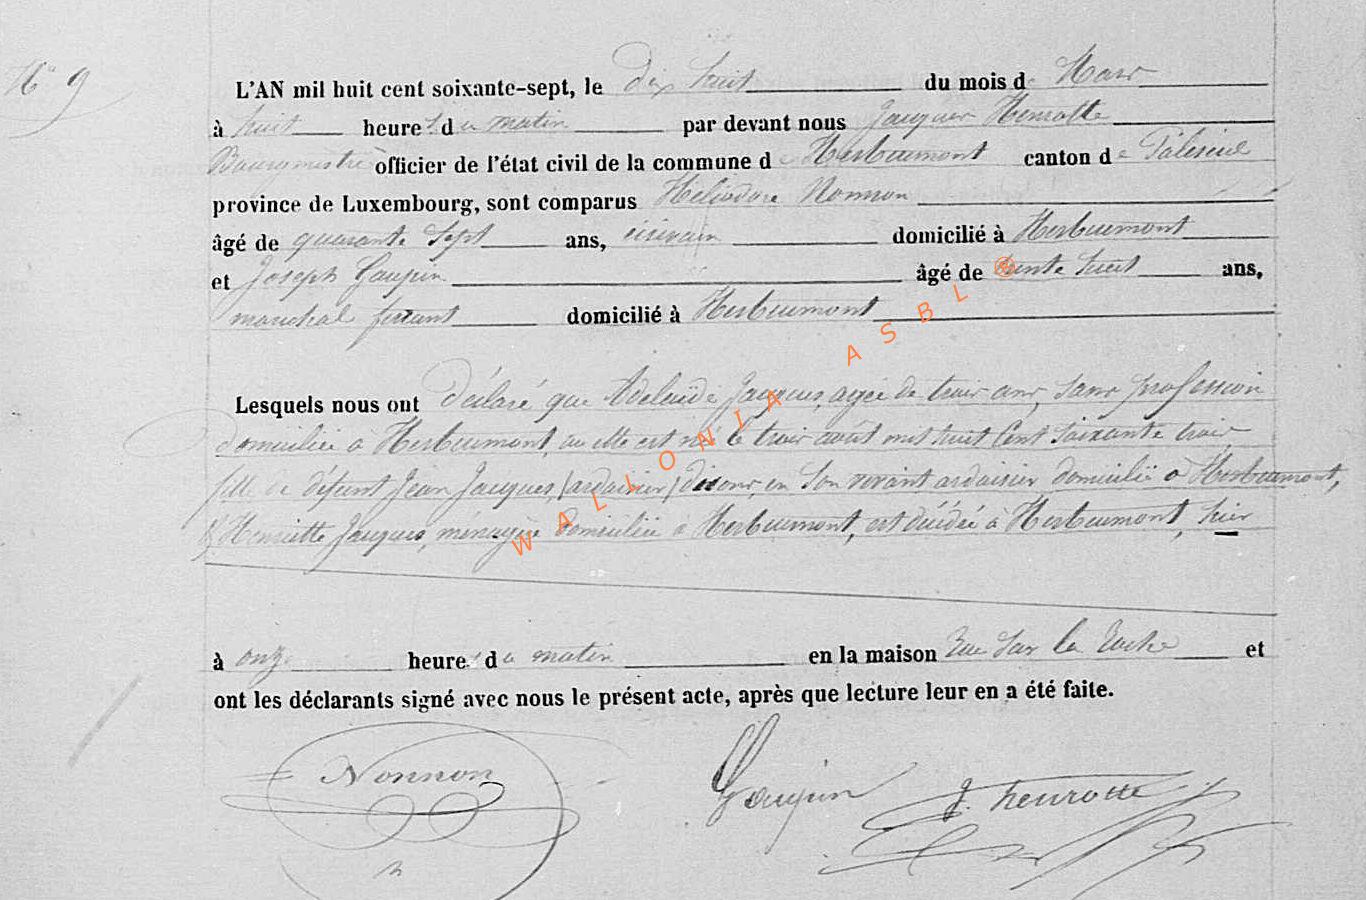 N° 9
L'AN mil huit cent soixante-sept, le dix huit du mois de Mars
à huit heures du matin par devant nous Jacques Henrotte
Bourgmestre officier de l'état civil de la commune de Herbeumont canton de Paliseul
province de Luxembourg, sont comparus Héliodore Nonnon
âgé de quarante sept ans, écrivain domicilié à Herbeumont
et Joseph Goupin âgé de trente huit ans,
marechal ferrant domicilié à Herbeumont
Lesquels nous ont déclaré que Adelaïde Jacques, agée de trois ans, sans profession
domiciliée à Herbeumont, où elle est née le trois août mil huit cent soixante trois
fille de défunt Jean Jacques (ardoisier) disons, en son vivant ardoisier domicilié à Herbeumont,
& Henriette Jacques, ménagère domiciliée à Herbeumont, est décédée à Herbeumont, hier
à onze heures du matin en la maison Rue Sur la Roche et
ont les déclarants signé avec nous le présent acte, après que lecture leur en a été faite.
Nonnon Goupin J. henrotte
WALLONIA ASBL ®